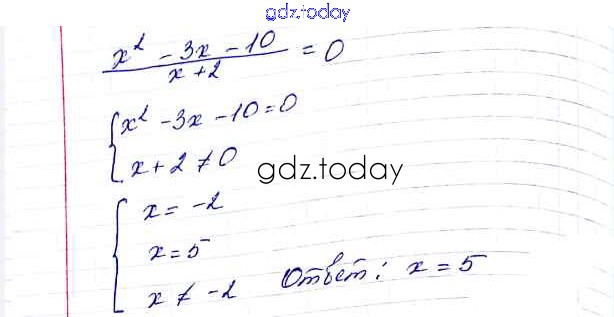 gdz.today
x² - 3x - 10
x + 2
= 0
x² - 3x - 10 = 0
x + 2 ≠ 0
gdz.today
x = -2
x = 5
x ≠ -2 Ответ: x = 5